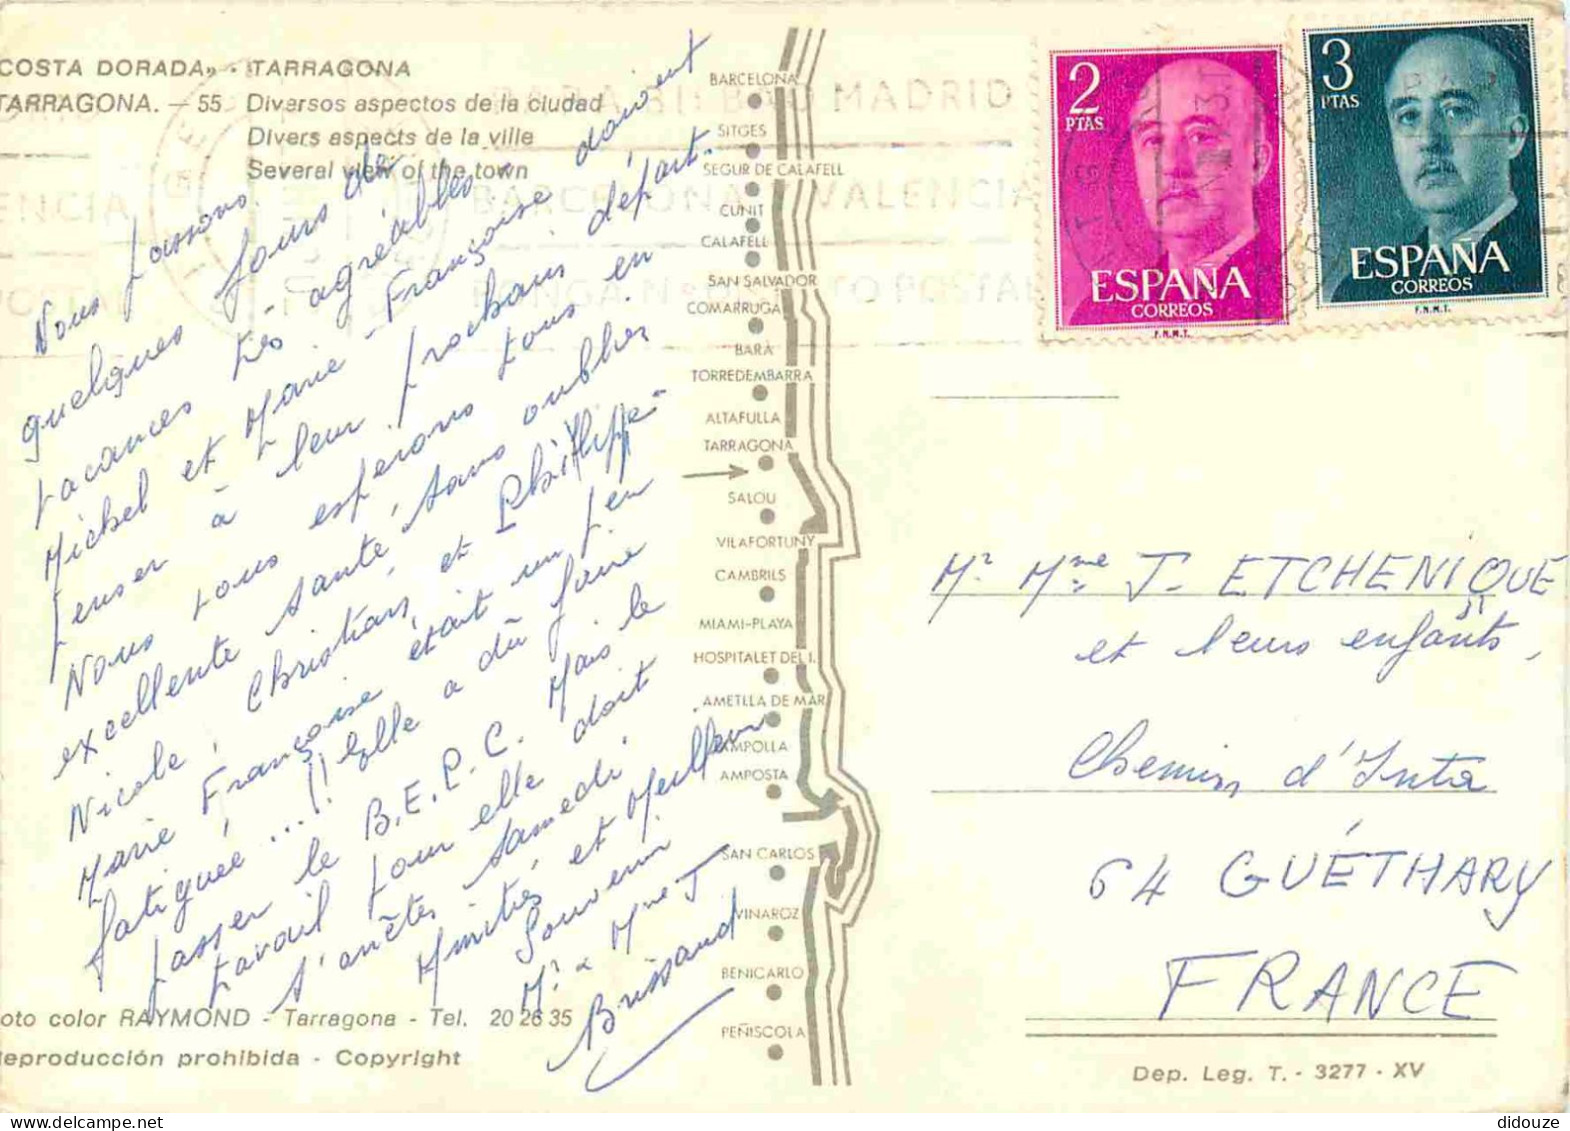 COSTA DORADA» - TARRAGONA
TARRAGONA. - 55 Diversos aspectos de la ciudad
Divers aspects de la ville
Several view of the town
Nous passons
quelques jours de
vacances très agréables
Michel et Marie-Françoise doivent
penser à leur prochain départ.
Nous vous espérons tous en
excellente santé, sans oublier
Nicole, Christian, et Philippe -
Marie Françoise était un peu
fatiguée ...!! Elle a dû faire
passer le B.E.P.C. Mais le
travail pour elle doit
s'arrêter samedi.
Amitiés et Meilleur
Souvenir
Mr & Mme J
Brissaud
oto color RAYMOND - Tarragona - Tel. 20 26 35
Reproducción prohibida - Copyright
BARCELONA
SITGES
SEGUR DE CALAFELL
CUNIT
CALAFELL
SAN SALVADOR
COMARRUGA
BARÀ
TORREDEMBARRA
ALTAFULLA
TARRAGONA
SALOU
VILAFORTUNY
CAMBRILS
MIAMI-PLAYA
HOSPITALET DEL I.
AMETLLA DE MAR
AMPOLLA
AMPOSTA
SAN CARLOS
VINAROZ
BENICARLO
PEÑISCOLA
BARCELONA VALENCIA
MADRID
ENCIA
POSTAL
2
PTAS
ESPAÑA
CORREOS
F.N.M.T.
3
PTAS
ESPAÑA
CORREOS
F.N.M.T.
Mr Mme J- ETCHENIQUE
et leurs enfants,
Chemin d'Inta
64 GUÉTHARY
FRANCE
Dep. Leg. T. - 3277 - XV
didouze